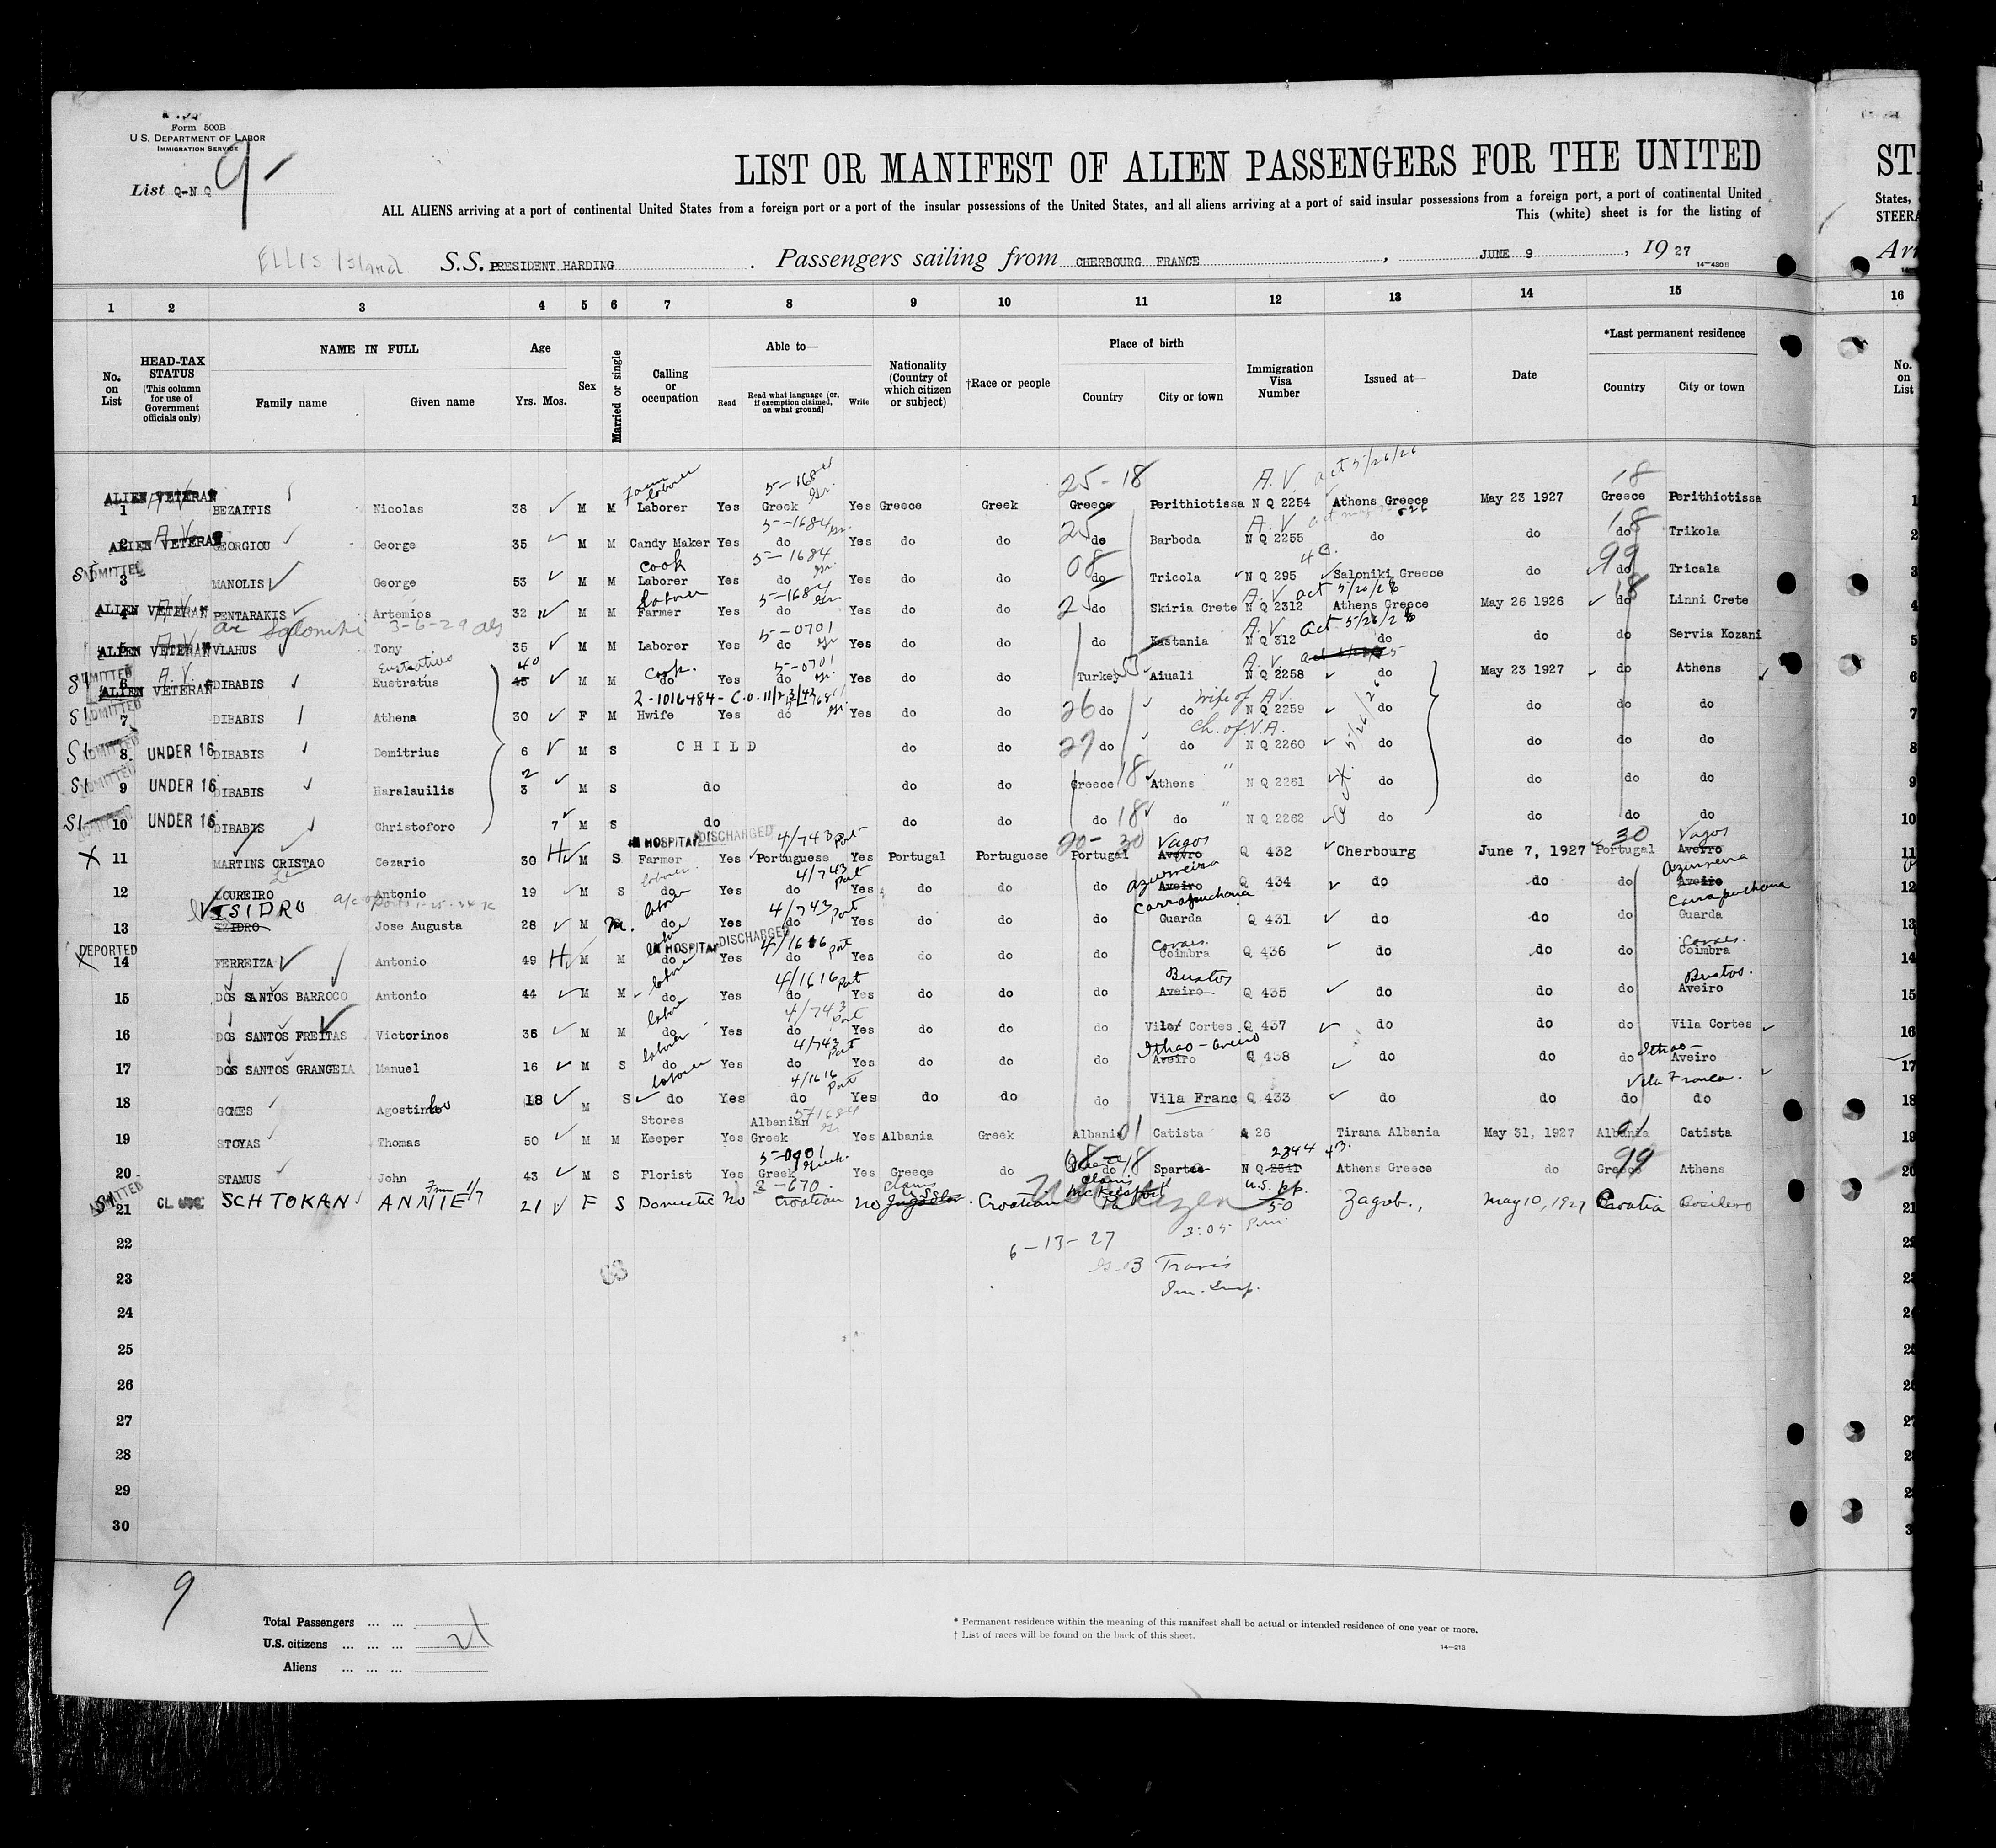 Form 500B
U. S. DEPARTMENT OF LABOR
IMMIGRATION SERVICE
List Q-N Q 9-
LIST OR MANIFEST OF ALIEN PASSENGERS FOR THE UNITED
ALL ALIENS arriving at a port of continental United States from a foreign port or a port of the insular possessions of the United States, and all aliens arriving at a port of said insular possessions from a foreign port, a port of continental United
This (white) sheet is for the listing of
Ellis Island S.S. PRESIDENT HARDING . Passengers sailing from CHERBOURG FRANCE , JUNE 9 , 19 27
14-430B
1 2 3 4 5 6 7 8 9 10 11 12 13 14 15 16
No. on List
HEAD-TAX STATUS (This column for use of Government officials only)
NAME IN FULL Family name Given name
Age Yrs. Mos.
Sex
Married or single
Calling or occupation
Able to— Read Read what language (or, if exemption claimed, on what ground) Write
Nationality (Country of which citizen or subject)
†Race or people
Place of birth Country City or town
Immigration Visa Number
Issued at—
Date
*Last permanent residence Country City or town
No. on List
25-18 A.V. act 5/26/26 18
ALIEN VETERAN farm laborer 5-1684 gr.
1 BEZAITIS Nicolas 38 M M Laborer Yes Greek Yes Greece Greek Greece Perithiotissa N Q 2254 Athens Greece May 23 1927 Greece Perithiotissa 1
ALIEN VETERAN A.V. 5-1684 gr. 25 A.V. 18
2 GEORGIOU George 35 M M Candy Maker Yes do Yes do do do Barboda N Q 2255 do do do Trikola 2
S1 ADMITTED cook 5-1684 gr. 08 99
3 MANOLIS George 53 M M Laborer Yes do Yes do do do Tricola N Q 295 Saloniki Greece do do Tricala 3
ALIEN VETERAN A.V. laborer 5-1684 gr. 25 A.V. act 5/26/26 18
4 PENTARAKIS Artemios 32 M M Farmer Yes do Yes do do do Skiria Crete N Q 2312 Athens Greece May 26 1926 do Linni Crete 4
ar Saloniki 3-6-29
ALIEN VETERAN A.V. 5-0701 gr. A.V. act 5/26/26
5 VLAHUS Tony 35 M M Laborer Yes do Yes do do do Kastania N Q 312 do do do Servia Kozani 5
S1 ADMITTED A.V. Eustratios 40 Cook. 5-0701 gr. A.V.
6 ALIEN VETERAN DIBABIS Eustratus 45 M M do Yes do Yes do do Turkey Aiuali N Q 2258 do May 23 1927 do Athens 6
S1 ADMITTED 2-1016484- C.O. 11/23/43 26 wife of A.V.
7 DIBABIS Athena 30 F M Hwife Yes do Yes do do do do N Q 2259 do do do do 7
S1 ADMITTED 27 ch. of V.A. act. 5/26/26
8 UNDER 16 DIBABIS Demitrius 6 M S CHILD do do do do N Q 2260 do do do do 8
S1 ADMITTED 2 18 "
9 UNDER 16 DIBABIS Haralauilis 3 M S do do do Greece Athens N Q 2261 do do do do 9
S1 18 "
10 UNDER 16 DIBABIS Christoforo 7 M S do do do do do N Q 2262 do do do do 10
IN HOSPITAL DISCHARGED 4/743 Port 20-30 Vagos 30 Vagos
X 11 MARTINS CRISTAO Cezario 30 H M S Farmer Yes Portuguese Yes Portugal Portuguese Portugal Aveiro Q 432 Cherbourg June 7, 1927 Portugal Aveiro 11
laborer 4/743 Port
12 LOUREIRO Antonio 19 M S do Yes do Yes do do do Aveiro Q 434 do do do Aveiro 12
ISIDRO laborer 4/743 Port Carrapuchana Carrapuchana
13 IZIDRO Jose Augusta 28 M M. do Yes do Yes do do do Guarda Q 431 do do do Guarda 13
DEPORTED IN HOSPITAL DISCHARGED 4/1616 Port Covoes. Covoes.
X 14 FERREIZA Antonio 49 H M M do Yes do Yes do do do Coimbra Q 436 do do do Coimbra 14
laborer 4/1616 Port Bustos Bustos.
15 DOS SANTOS BARROCO Antonio 44 M M do Yes do Yes do do do Aveiro Q 435 do do do Aveiro 15
labor 4/743 Port
16 DOS SANTOS FREITAS Victorinos 36 M M do Yes do Yes do do do Vila Cortes Q 437 do do do Vila Cortes 16
laborer 4/743 Port Ilhao - Aveiro Ilhao-
17 DOS SANTOS GRANGEIA Manuel 16 M S do Yes do Yes do do do Aveiro Q 438 do do do Aveiro 17
laborer 4/1616 Port Vila Franca.
18 GOMES Agostinho 18 M S do Yes do Yes do do do Vila Franc Q 433 do do do do 18
Stores Albanian 5-1684 gr.
19 STOYAS Thomas 50 M M Keeper Yes Greek Yes Albania Greek Albania 01 Catista Q 26 Tirana Albania May 31, 1927 Albania 01 Catista 19
5-0901 Greece 18 2344 99
20 STAMUS John 43 M S Florist Yes Greek Yes Greece do do Spartee N Q 2341 Athens Greece do Greece Athens 20
S1 ADMITTED 8-670. claims U.S. claims McKeesport Pa U.S. pp. U.S. Citizen
21 SCHTOKAN ANNIE 21 F S Domestic No Croatian No Jugoslav. Croatian 50 Zagreb., May 10, 1927 Croatia 21
6-13-27 3:05 p.m.
22 22
B Travis
23 23
Im. Insp.
24 24
25 25
26 26
27 27
28 28
29 29
30
9
Total Passengers ... ...
U.S. citizens ... ... ... 21
Aliens ... ... ...
* Permanent residence within the meaning of this manifest shall be actual or intended residence of one year or more.
† List of races will be found on the back of this sheet.
14-213
ST
States,
STEERA
Arr